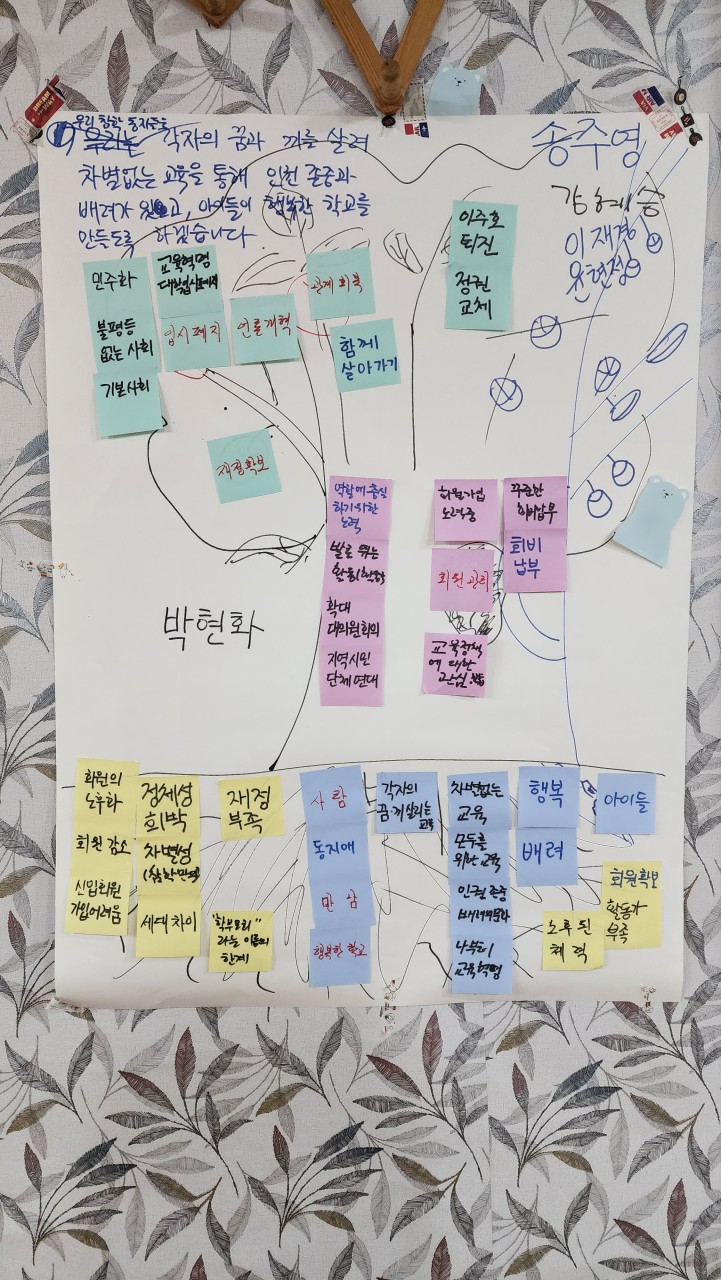 우리 참학 동지들은
① 우리는 각자의 꿈과 끼를 살려
차별없는 교육을 통해 인권 존중과
배려가 있고, 아이들이 행복한 학교를
만들도록 하겠습니다
송주영
김혜승
이재경
윤현정
민주화
불평등
없는 사회
기본사회
교육혁명
입시폐지
언론개혁
관계 회복
함께
살아가기
재정확보
이주호
퇴진
정권
교체
역할에 충실
하기위한
노력
발로 뛰는
확대
대의원회의
지역시민
단체연대
회원가입
노력중
회원관리
교육정책
에 대한
관심
꾸준한
회비납부
회비
납부
박현화
회원의
노후화
회원 감소
신입회원
가입어려움
정체성
희박
차별성
세대차이
재정
부족
"학부모회"
라는 이름의
한계
사람
동지애
만남
행복한 학교
각자의
꿈·끼 살리는
교육
차별없는
교육
모두를
위한 교육
인권 존중
배려의 문화
나부터
교육혁명
행복
배려
아이들
회원확보
활동가
부족
노후 된
체력